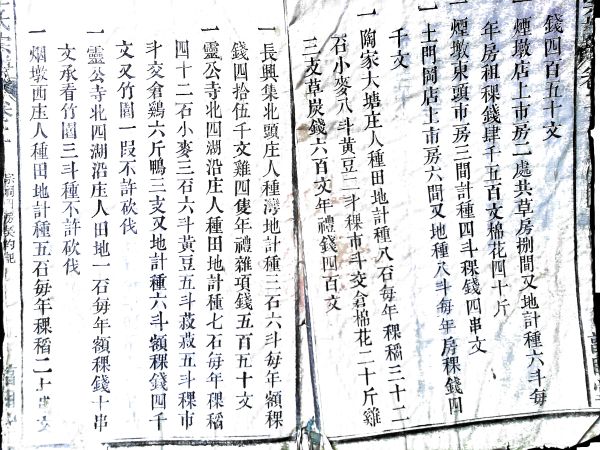 錢四百五十文
一煙墩店上市房二處共草房捌間又地計種六斗每
年房租稞錢肆千五百文棉花四十斤
一煙墩東頭市房三間計種四斗稞錢四串文
一土門岡店上市房六間又地種八斗每年房稞錢四
千文
一陶家大塘庄人種田地計種八石每年稞稻三十二
石小麥八斗黃豆二斗稞市斗交倉棉花二十斤雞
三支草炭錢六百文年禮錢四百文
一長興集北頭庄人種灣地計種三石六斗每年額稞
錢四拾伍千文雞四隻年禮雜項錢五百五十文
一靈公寺北四湖沿庄人種田地計種七石每年稞稻
四十二石小麥三石六斗黃豆五斗菽菽五斗稞市
斗交倉鷄六斤鴨三支又地計種六斗額稞錢四千
文又竹園一段不許砍伐
一靈公寺北四湖沿庄人田地一石每年額稞錢十串
文承看竹園三斗種不許砍伐
一烟墩西庄人種田地計種五石每年稞稻二十串文